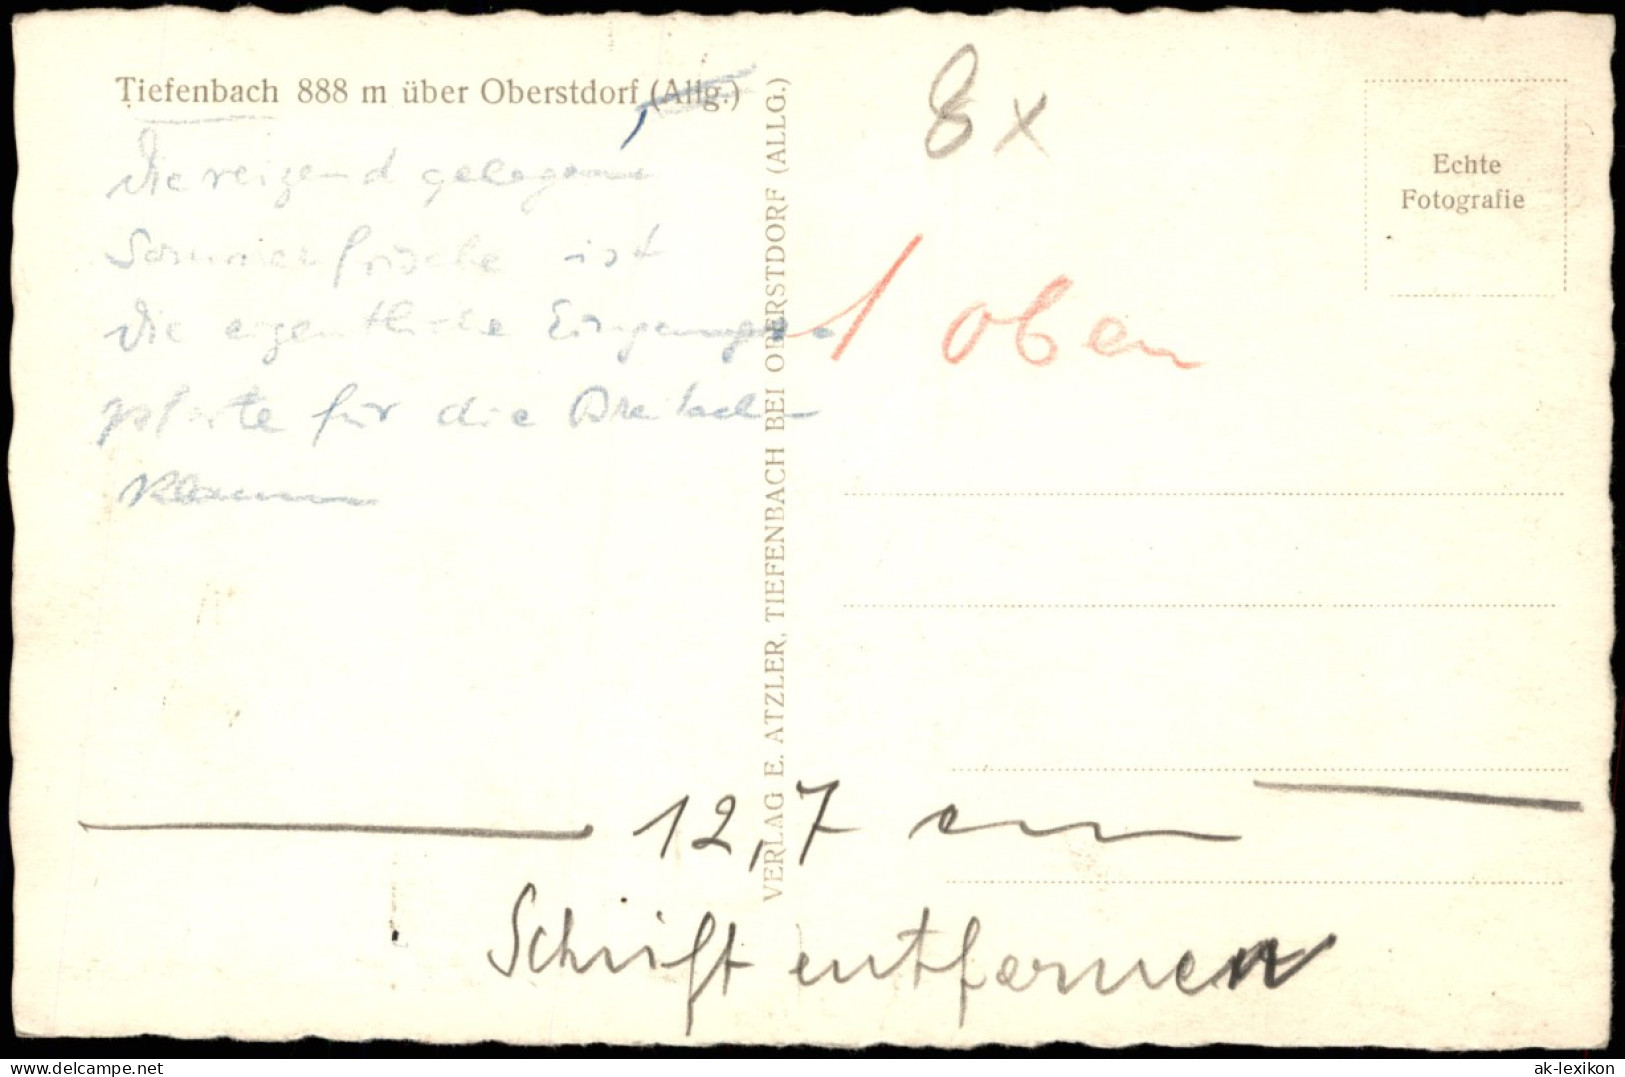 Tiefenbach 888 m über Oberstdorf (Allg.)
,
Die reizend gelegene
Sommerfrische ist
die eigentliche Eingangs-
pforte für die Breitach-
klamm
VERLAG E. ATZLER, TIEFENBACH BEI OBERSTDORF (ALLG.)
8x
Echte
Fotografie
1 oben
12,7 cm
Schrift entfernen
delcampe.net
ak-lexikon